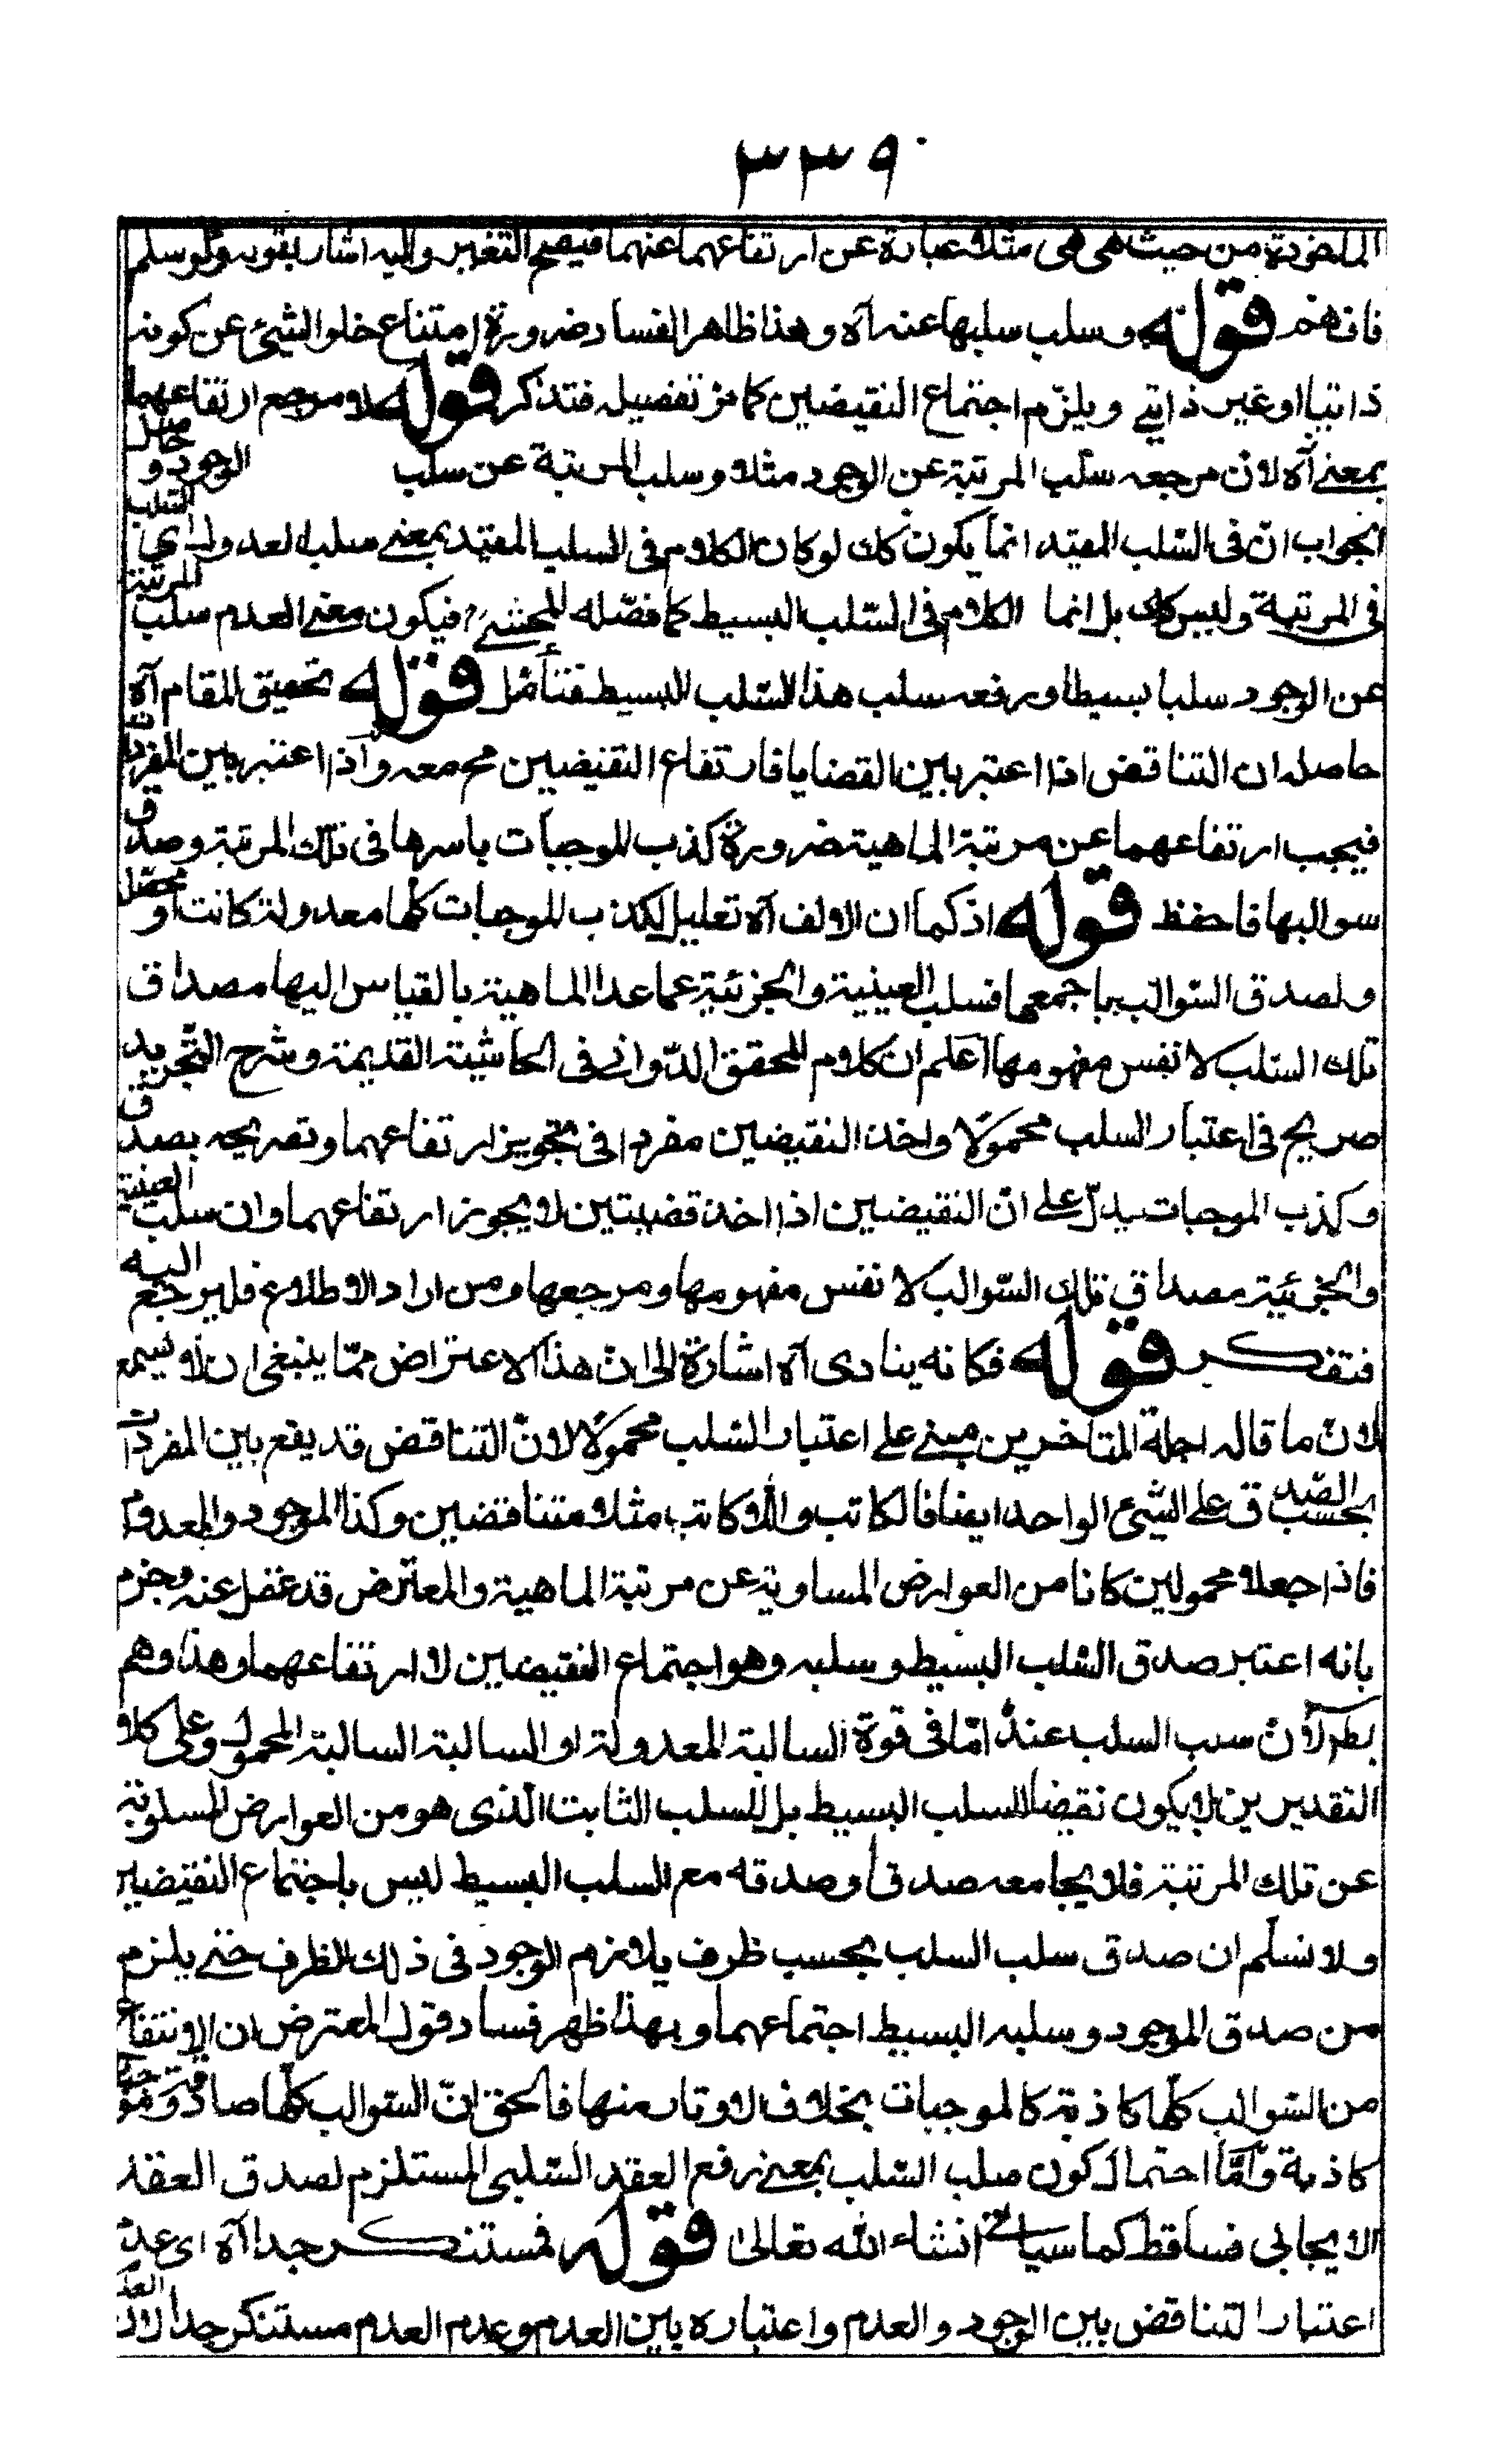 ٣٣٩
الماخوذة من حيث هي هي مثلا عبارة عن ارتفاعهما عنهما فيصح التغير واليه اشار بقوله ولو سلم
فافهم قوله وسلب سلبها عنه آه وهذا ظاهر الفساد ضرورة امتناع خلو الشيئ عن كونه
ذاتيا او غير ذاتي ويلزم اجتماع النقيضين كما مر تفصيله فتذكر قوله ومرجع ارتفاعهما
بمعنى آه لان مرجعه سلب المرتبة عن الوجود مثلا وسلب المرتبة عن سلب الوجود وحاصل
الجواب ان في السلب المقيد انما يكون كك لو كان الكلام في السلب المقيد بمعنى سلب العدول اي السلب
في المرتبة وليس كك بل انما الكلام في السلب البسيط كما فصله المحشي فيكون معنى العدم سلب المرتبة
عن الوجود سلبا بسيطا ورفعه سلب هذا السلب البسيط فتأمل قوله تحقيق المقام آه
حاصله ان التناقض اذا اعتبر بين القضايا فارتفاع النقيضين مح معه واذا اعتبر بين المفردات
فيجب ارتفاعهما عن مرتبة الماهية ضرورة كذب الموجبات باسرها في تلك المرتبة وصدق
سوالبها فاحفظ قوله اذ كما ان الالف آه تعليل لكذب الموجبات كلها معدولة كانت او محصلة
ولصدق السوالب باجمعها فسلب العينية والجزئية عما عدا الماهية بالقياس اليها مصداق
تلك السلب لا نفس مفهومها اعلم ان كلام المحقق الدواني في الحاشية القديمة وشرح التجريد
صريح في اعتبار السلب محمولا واخذ النقيضين مفردا في تجويز ارتفاعهما وتصريحه بصدق
وكذب الموجبات يدل على ان النقيضين اذا اخذ قضيتين لا يجوز ارتفاعهما وان سلب العينية
والجزئية مصداق تلك السوالب لا نفس مفهومها ومرجعها ومن اراد الاطلاع فليرجع اليه
فتفكر قوله فكانه ينادى آه اشارة الى ان هذا الاعتراض مما ينبغي ان لا يسمع
لان ما قاله اجلة المتاخرين مبني على اعتبار السلب محمولا لان التناقض قد يقع بين المفردات
بحسب الصدق على الشيئ الواحد ايضا فالكاتب واللاكاتب مثلا متناقضين وكذا الموجود والمعدوم
فاذا جعلا محمولين كانا من العوارض المساوية عن مرتبة الماهية والمعترض قد غفل عنه وجزم
بانه اعتبر صدق السلب البسيط وسلبه وهو اجتماع النقيضين لا ارتفاعهما وهذا وهم
لان سلب السلب عنده اما في قوة السالبة المعدولة او السالبة السالبة المحمول وعلى كلا
التقديرين لا يكون نقيضا للسلب البسيط بل للسلب الثابت الذى هو من العوارض المسلوبة
عن تلك المرتبة فلا يجامعه صدقا وصدقه مع السلب البسيط ليس باجتماع النقيضين
ولا نسلم ان صدق سلب السلب بحسب ظرف يلازم الوجود في ذلك الظرف حتى يلزم
من صدق الموجود وسلبه البسيط اجتماعهما وبهذا ظهر فساد قول المعترض ان
من السوالب كلها كاذبة كالموجبات بخلاف الاوتار منها فالحق ان السوالب كلها صادقة
كاذبة واما احتمال كون سلب السلب بمعنى رفع العقد السلبي المستلزم لصدق العقد
الايجابي فساقط كما سياتي انشاء الله تعالى قوله فمستنكر جدا آه اى عدم
اعتبار التناقض بين الوجود والعدم واعتباره بين العدم وعدم العدم مستنكر جدا لان